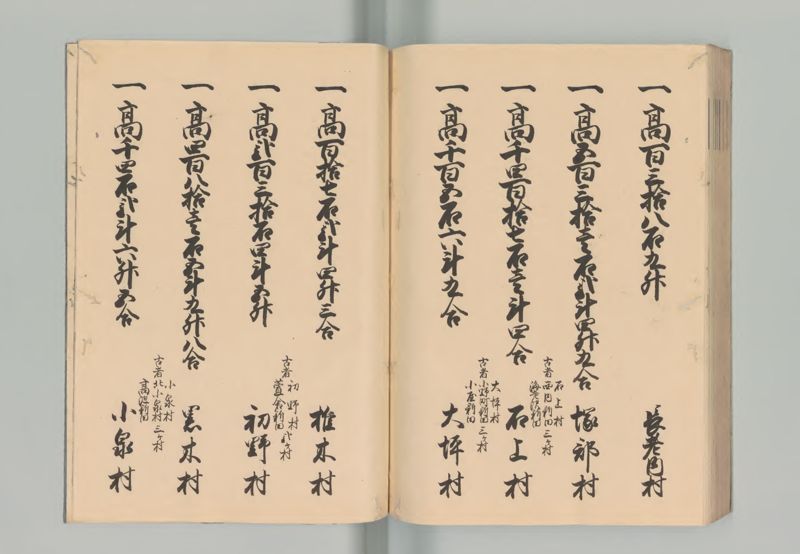 一高百三拾八石九升
長老内村
一高五百三拾壱石弐斗四升九合
塚部村
一高千四百拾七石壱斗四合
石上村
古者
石上村
西内新田
海老沢新田
三ヶ村
一高千百五石六斗九合
大坪村
古者
大坪村
小野町新田
小屋新田
三ヶ村
一高百拾七石弐斗四升三合
椎木村
一高弐百三拾石四斗五升
初野村
古者
初野村
菅谷新田
弐ヶ村
一高四百八拾壱石五斗九升八合
黒木村
一高千四石弐斗六升五合
小泉村
古者
小泉村
北小泉村
高池新田
三ヶ村